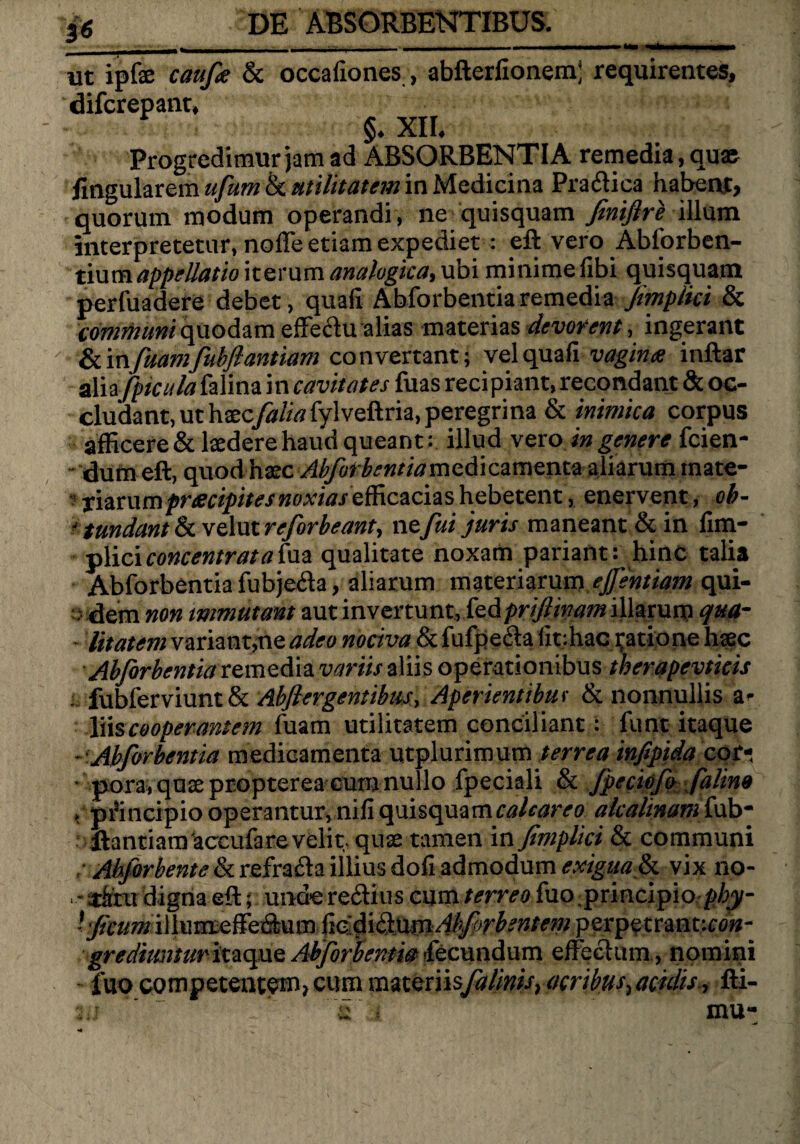 36 DE ABSORBENTIBUS.
ut ipſæ cauſæ & occaſiones, abſterſionem requirentes,
diſcrepant.
§. XII.
Progredimur jam ad ABSORBENTIA remedia, quæ
ſingularem uſum & utilitatem in Medicina Practica habent,
quorum modum operandi, ne quisquam ſiniſtrè illum
interpretetur, noſſe etiam expediet : eſt vero Abſorben-
tium appellatio iterum analogica, ubi minime ſibi quisquam
perſuadere debet, quaſi Abſorbentia remedia ſimplici &
communi quodam effectu alias materias devorent, ingerant
& in ſuam ſubſtantiam convertant; vel quaſi vaginæ inſtar
alia ſpicula ſalina in cavitates ſuas recipiant, recondant & oc-
cludant, ut hæc ſalia ſylveſtria, peregrina & inimica corpus
afficere & lædere haud queant: illud vero in genere ſcien-
dum eſt, quod hæc Abſorbentia medicamenta aliarum mate-
riarum præcipites noxias efficacias hebetent, enervent, ob-
tundant & velut reſorbeant, ne ſui juris maneant & in ſim-
plici concentrata ſua qualitate noxam pariant: hinc talia
Abſorbentia ſubjecta, aliarum materiarum eſſentiam qui-
dem non immutant aut invertunt, ſed priſtinam illarum qua-
litatem variant, ne adeo nociva & ſuſpecta ſit: hac ratione hæc
Abſorbentia remedia variis aliis operationibus therapevticis
ſubſerviunt & Abſtergentibus, Aperientibus & nonnullis a-
liis cooperantem ſuam utilitatem conciliant : ſunt itaque
Abſorbentia medicamenta utplurimum terrea inſipida cor-
pora, quæ propterea cum nullo ſpeciali & ſpecioſo ſalino
principio operantur, niſi quisquam calcareo alcalinam ſub-
ſtantiam accuſare velit, quæ tamen in ſimplici & communi
Abſorbente & refracta illius doſi admodum exigua & vix no-
tatu digna eſt; unde rectius cum terreo ſuo principio phy-
ſicum illum effectum ſic dictum Abſorbentem perpetrant: con-
grediuntur itaque Abſorbentia ſecundum effectum, nomini
ſuo competentem, cum materiis ſalinis, acribus, acidis, ſti-
mu-